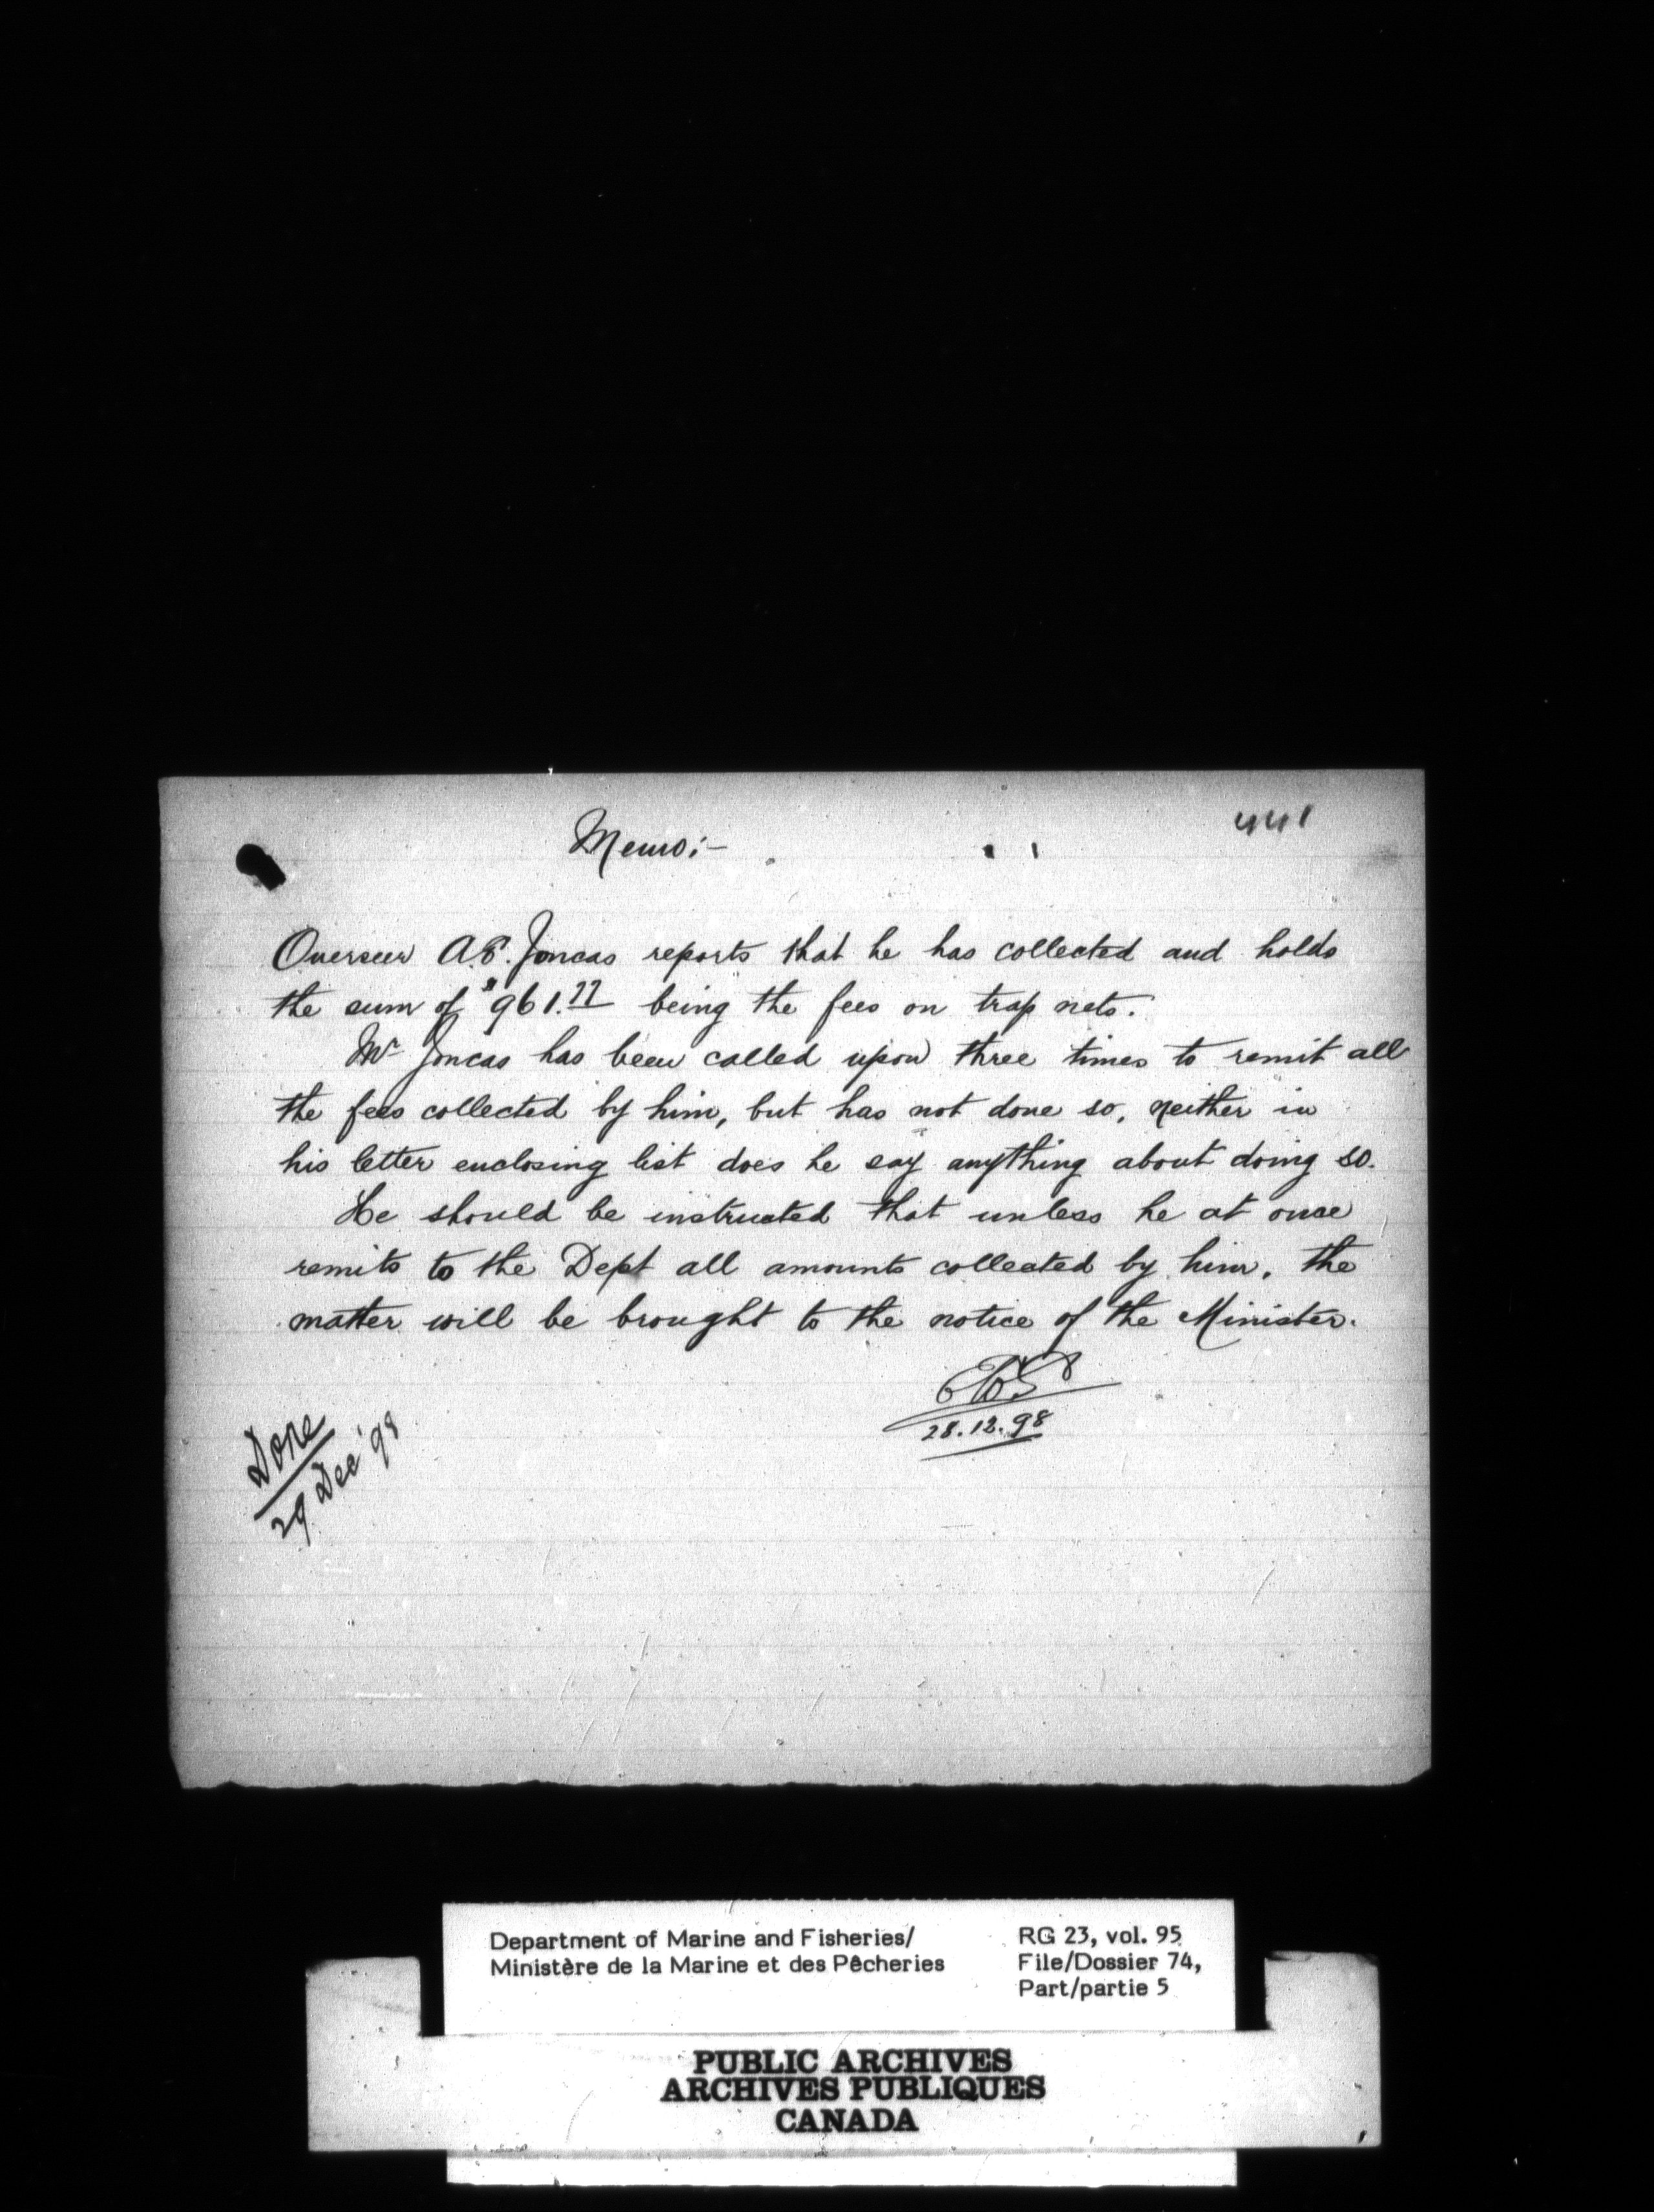 441
Memo:-
Overseer A.P. Joncas reports that he has collected and holds
the sum of $961.77 being the fees on trap nets.
Mr Joncas has been called upon three times to remit all
the fees collected by him, but has not done so, neither in
his letter enclosing list does he say anything about doing so.
He should be instructed that unless he at once
remits to the Dept all amounts collected by him, the
matter will be brought to the notice of the Minister.
28.12.98
Done
29 Dec '98
Department of Marine and Fisheries/
Ministère de la Marine et des Pêcheries
RG 23, vol. 95
File/Dossier 74,
Part/partie 5
PUBLIC ARCHIVES
ARCHIVES PUBLIQUES
CANADA